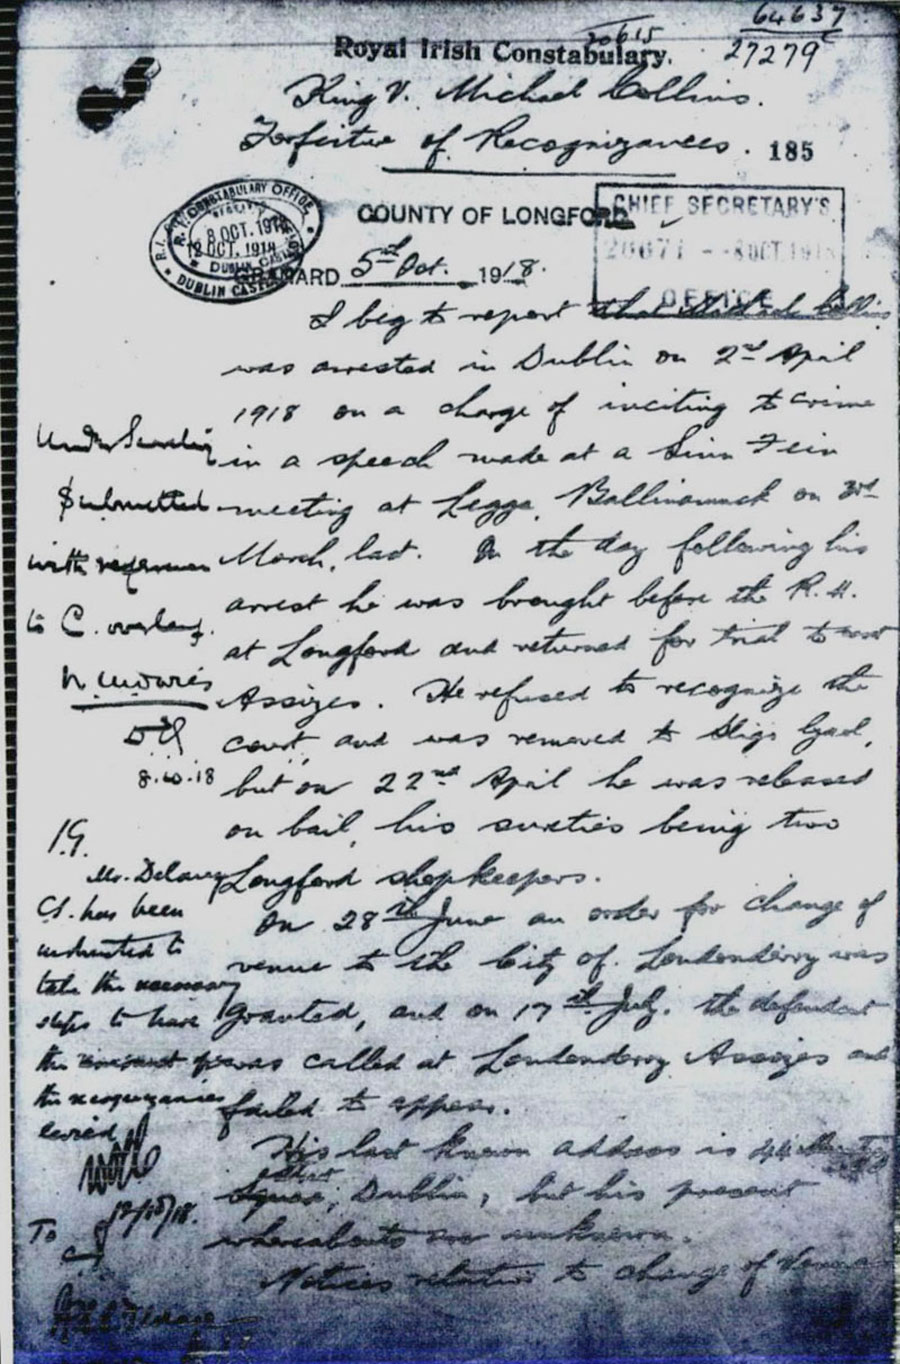 64637
20615
27279
Royal Irish Constabulary.
King V. Michael Collins.
Forfeiture of Recognizances. 185
R.I. CONSTABULARY OFFICE
8 OCT. 1918
12 OCT. 1918
DUBLIN CASTLE
COUNTY OF LONGFORD
CHIEF SECRETARY'S
20671 - -8 OCT. 1918
OFFICE
GRANARD 5th Oct. 1918.
I beg to report that Michael Collins
was arrested in Dublin on 2nd April
1918 on a charge of inciting to crime
in a speech made at a Sinn Fein
meeting at Legga, Ballinamuck on 3rd
March, last. On the day following his
arrest he was brought before the R.M.
at Longford and returned for trial to next
Assizes. He refused to recognize the
court, and was removed to Sligo Gaol,
but on 22nd April he was released
on bail, his sureties being two
Longford shopkeepers.
On 28th June an order for change of
venue to the City of Londonderry was
granted, and on 17th July. the defendant
was called at Londonderry Assizes and
failed to appear.
His last known address is 44
Square, Dublin, but his present
whereabouts are unknown.
Notices relative to change of venue
Under Secretary
Submitted
with reference
to C. overleaf.
8.10.18
I.G.
Mr. Delaney
C.S. has been
instructed to
take the necessary
steps to have
the amount of
the recognizances
levied
12/10/18.
To